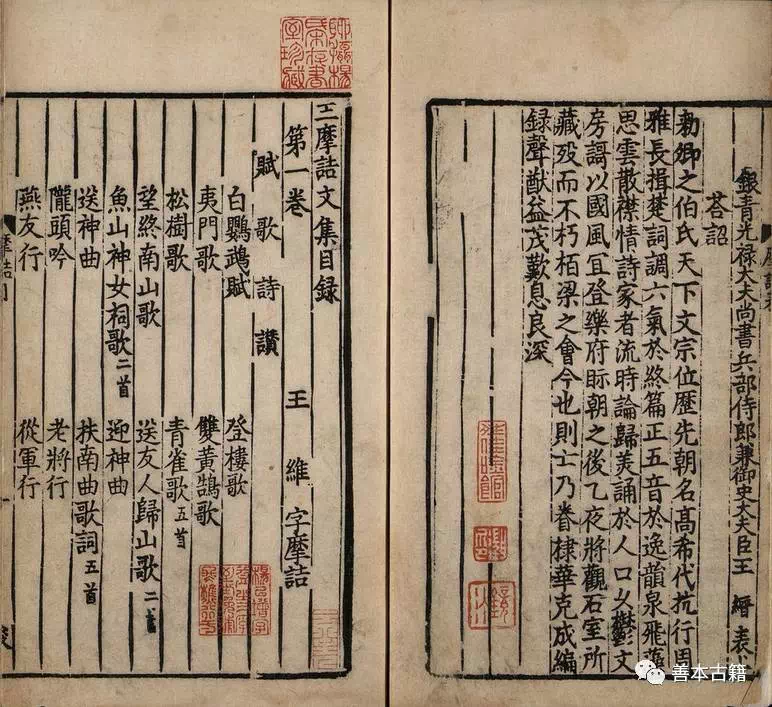 銀青光禄大夫尚書兵部侍郎兼御史大夫臣王 縉表
荅詔
勑卿之伯氏天下文宗位歴先朝名髙希代抗行周
雅長揖楚詞調六氣於終篇正五音於逸韻泉飛藻
思雲散襟情詩家者流時論歸美誦於人口乆鬱文
房謌以國風冝登樂府眎朝之後乙夜將觀石室所
藏殁而不朽栢梁之會今也則士乃眷棣華克成編
録聲猷益茂歎息良深
王摩詰文集目録
第一卷 王 維 字摩詰
賦 歌 詩 讃
白鸚鵡賦 登樓歌
夷門歌 雙黃鵠歌
松樹歌 青雀歌五首
望終南山歌 送友人歸山歌二首
魚山神女祠歌二首 迎神曲
送神曲 扶南曲歌詞五首
隴頭吟 老將行
燕友行 從軍行
善本古籍